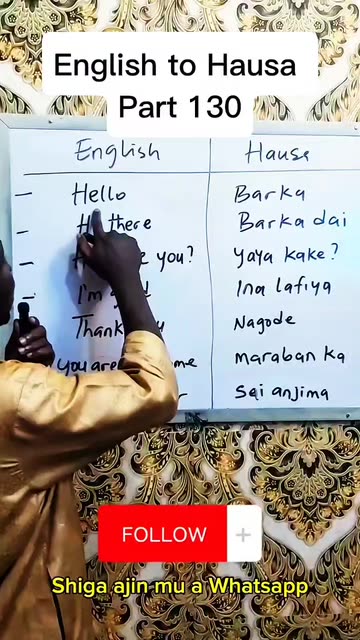 English to Hausa
Part 130
English Hausa
Hello Barka
there Barka dai
you? Yaya kake?
I'm Ina lafiya
Thank Nagode
you are maraban ka
Sai anjima
FOLLOW +
Shiga ajin mu a Whatsapp